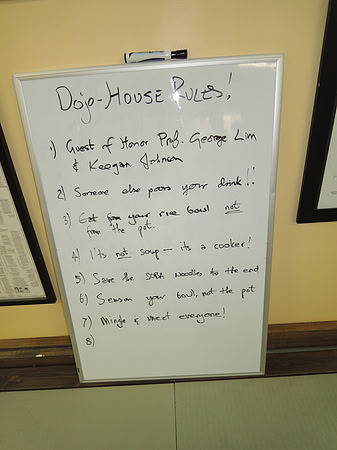 Dojo-HOUSE RULES!
1) Guest of Honor Prof. George Lim
& Keegan Johnson
2) Someone else pours your drink!!
3) Eat from your rice bowl not
from the pot.
4) It's not soup - its a cooker!
5) Save the SOBA noodles to the end
6) Season your bowl, not the pot
7) Mingle & meet everyone!
8)